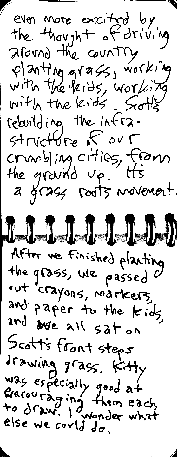 even more excited by
the thought of driving
around the country
planting grass, working
with the kids, working
with the kids. Scott's
rebuilding the infra-
structure of our
crumbling cities, from
the ground up. It's
a grass roots movement.
After we finished planting
the grass, we passed
out crayons, markers,
and paper to the kids,
and we all sat on
Scott's front steps
drawing grass. Kitty
was especially good at
encouraging them each
to draw. I wonder what
else we could do.